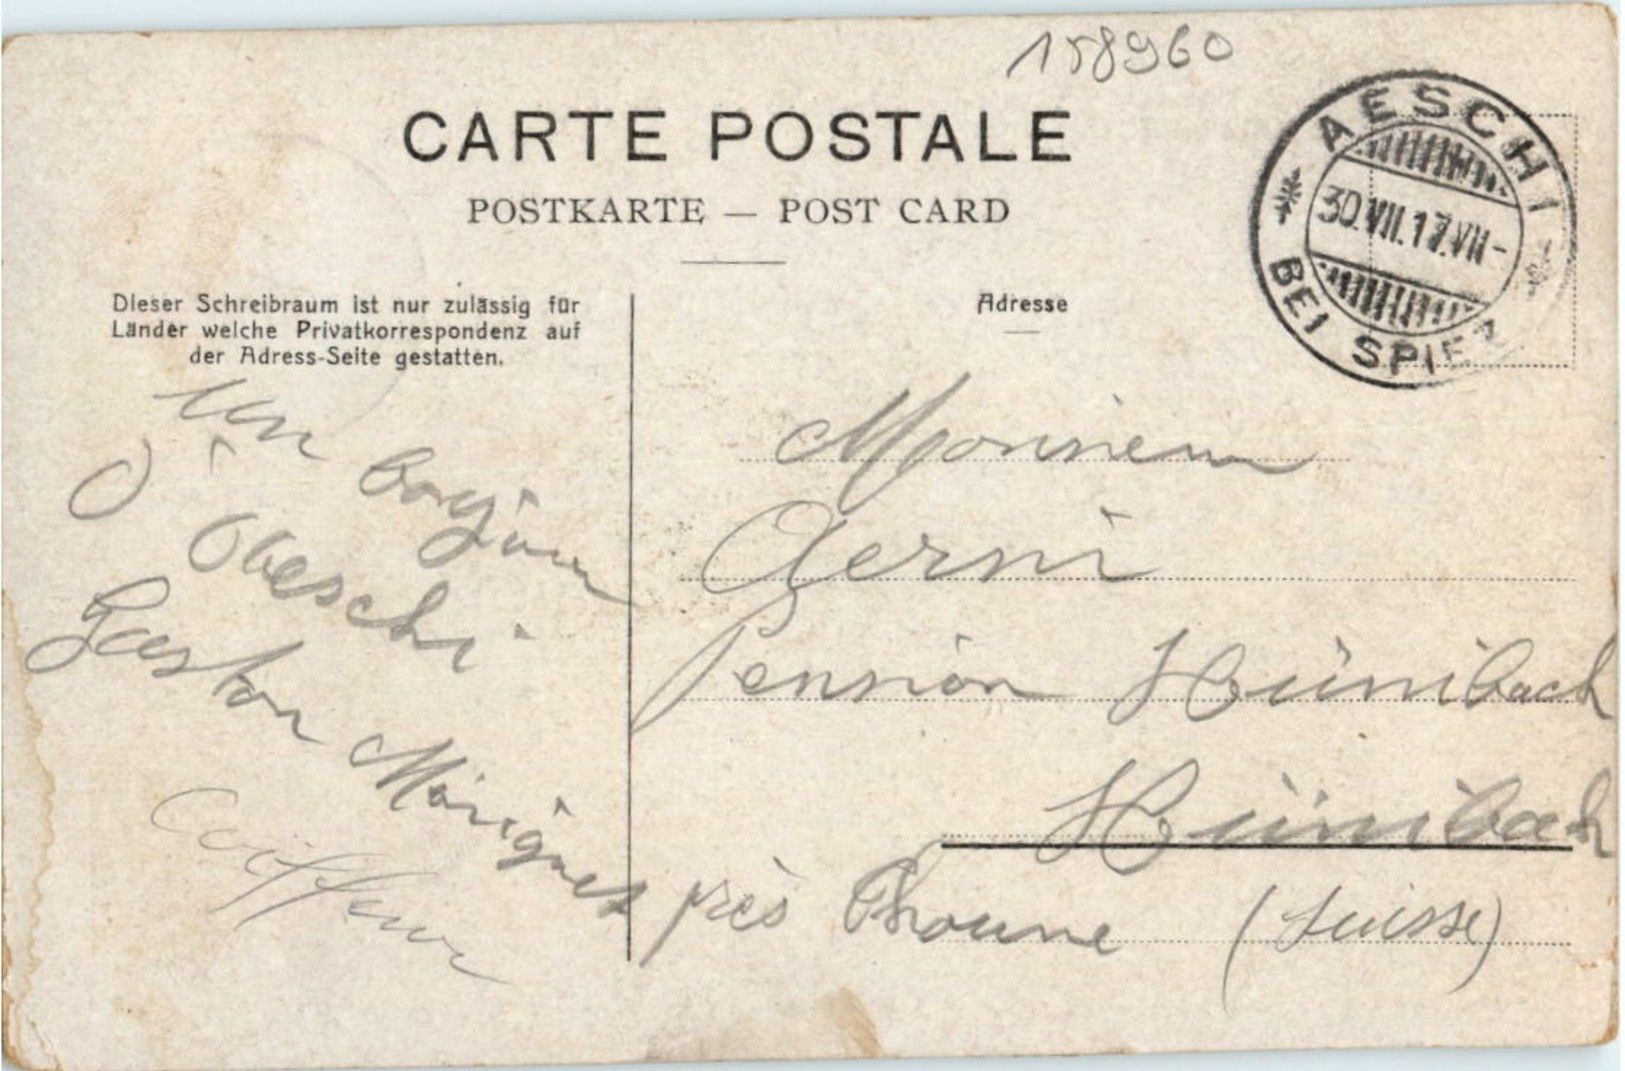 158960
CARTE POSTALE
POSTKARTE — POST CARD
AESCHI
30.VII.17.VII-
BEI SPIEZ
Dieser Schreibraum ist nur zulässig für
Länder welche Privatkorrespondenz auf
der Adress-Seite gestatten.
Adresse
Un bonjour
d'Aeschi
Gaston
Coiffeur
Monsieur
Aerni
Pension Hünibach
Hünibach
près Thoune (Suisse)